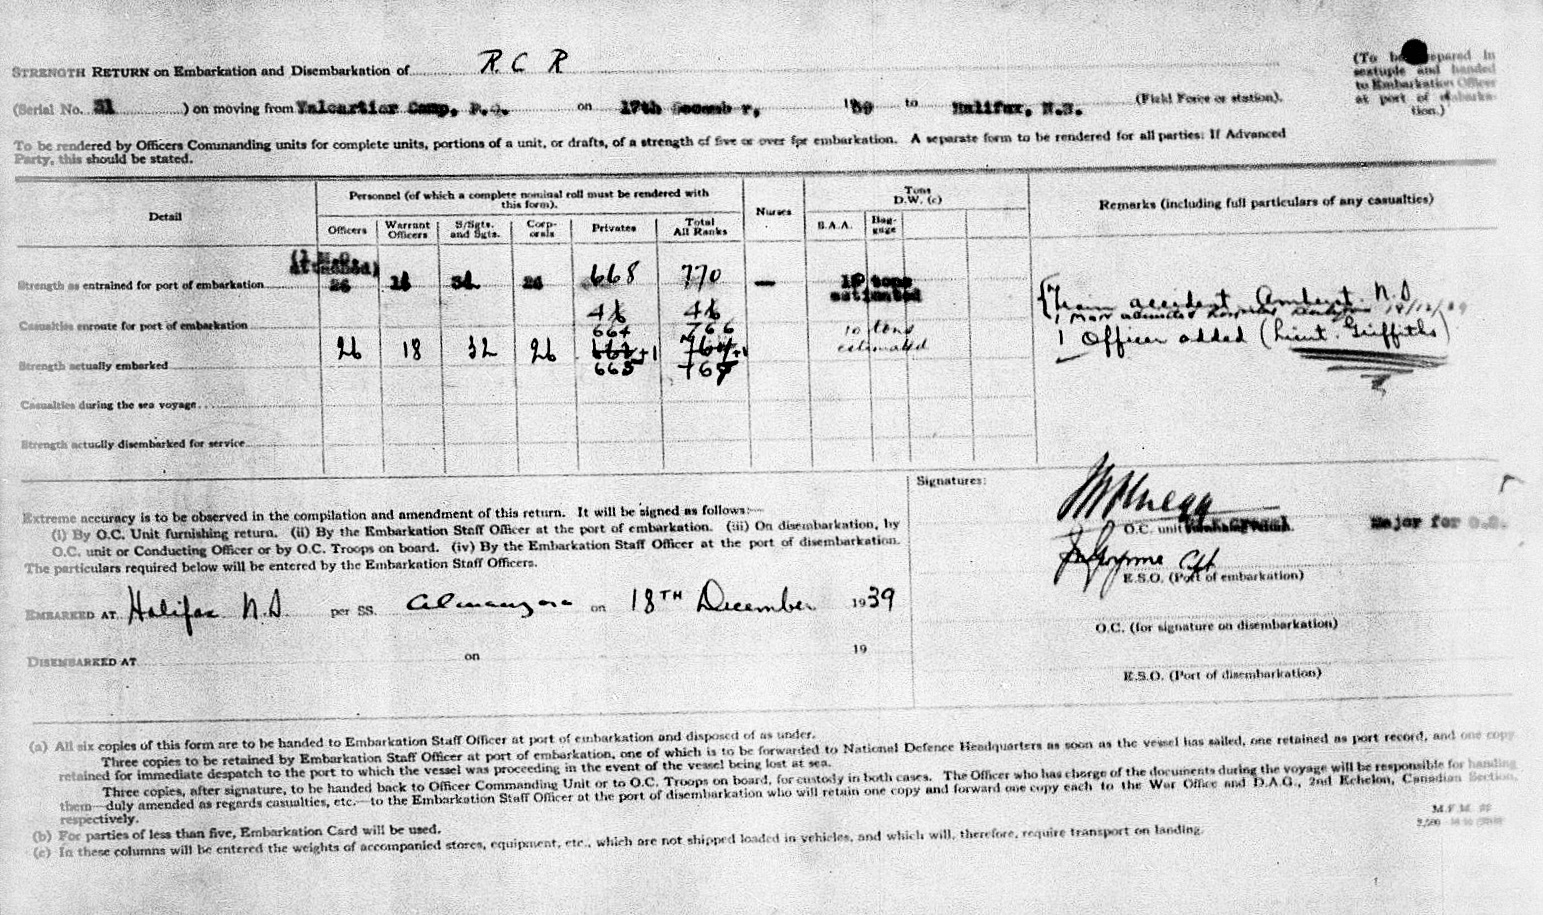 STRENGTH RETURN on Embarkation and Disembarkation of R C R
(To be prepared in sextuple and handed to Embarkation Officer at port of embarkation.)
(Serial No. 31) on moving from Valcartier Camp, P.Q. on 17th December, 1939 to Halifax, N.S. (Field Force or station).
To be rendered by Officers Commanding units for complete units, portions of a unit, or drafts, of a strength of five or over for embarkation. A separate form to be rendered for all parties: If Advanced
Party, this should be stated.
Detail
Personnel (of which a complete nominal roll must be rendered with this form).
Nurses
Tons D.W. (c)
Remarks (including full particulars of any casualties)
Officers Warrant Officers S/Sgts. and Sgts. Corporals Privates Total All Ranks S.A.A. Baggage
(1 M.O. Attached)
Strength as entrained for port of embarkation 26 18 32 26 668 770 — 10 tons estimated
Casualties enroute for port of embarkation
664 766 10 tons estimated
Strength actually embarked 26 18 32 26 +1 +1
665
{Train accident Amherst N.S.
1 man admitted 18/12/39
1 Officer added (Lieut. Griffiths)
Casualties during the sea voyage
Strength actually disembarked for service
Signatures:
Extreme accuracy is to be observed in the compilation and amendment of this return. It will be signed as follows:—
(i) By O.C. Unit furnishing return. (ii) By the Embarkation Staff Officer at the port of embarkation. (iii) On disembarkation, by
O.C. unit or Conducting Officer or by O.C. Troops on board. (iv) By the Embarkation Staff Officer at the port of disembarkation.
The particulars required below will be entered by the Embarkation Staff Officers.
O.C. unit Major for O.C.
E.S.O. (Port of embarkation)
EMBARKED AT Halifax N.S. per SS. Almanzora on 18TH December 1939
O.C. (for signature on disembarkation)
DISEMBARKED AT on 19
E.S.O. (Port of disembarkation)
(a) All six copies of this form are to be handed to Embarkation Staff Officer at port of embarkation and disposed of as under.
Three copies to be retained by Embarkation Staff Officer at port of embarkation, one of which is to be forwarded to National Defence Headquarters as soon as the vessel has sailed, one retained as port record, and one copy
retained for immediate despatch to the port to which the vessel was proceeding in the event of the vessel being lost at sea.
Three copies, after signature, to be handed back to Officer Commanding Unit or to O.C. Troops on board, for custody in both cases. The Officer who has charge of the documents during the voyage will be responsible for handing
them—duly amended as regards casualties, etc.—to the Embarkation Staff Officer at the port of disembarkation who will retain one copy and forward one copy each to the War Office and D.A.G., 2nd Echelon, Canadian Section,
respectively.
(b) For parties of less than five, Embarkation Card will be used.
(c) In these columns will be entered the weights of accompanied stores, equipment, etc., which are not shipped loaded in vehicles, and which will, therefore, require transport on landing.